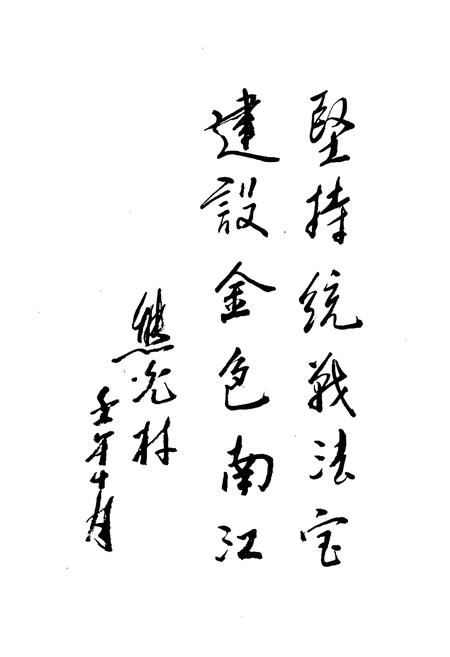 堅持統戰法宝
建設金色南江
熊光林
壬年十月